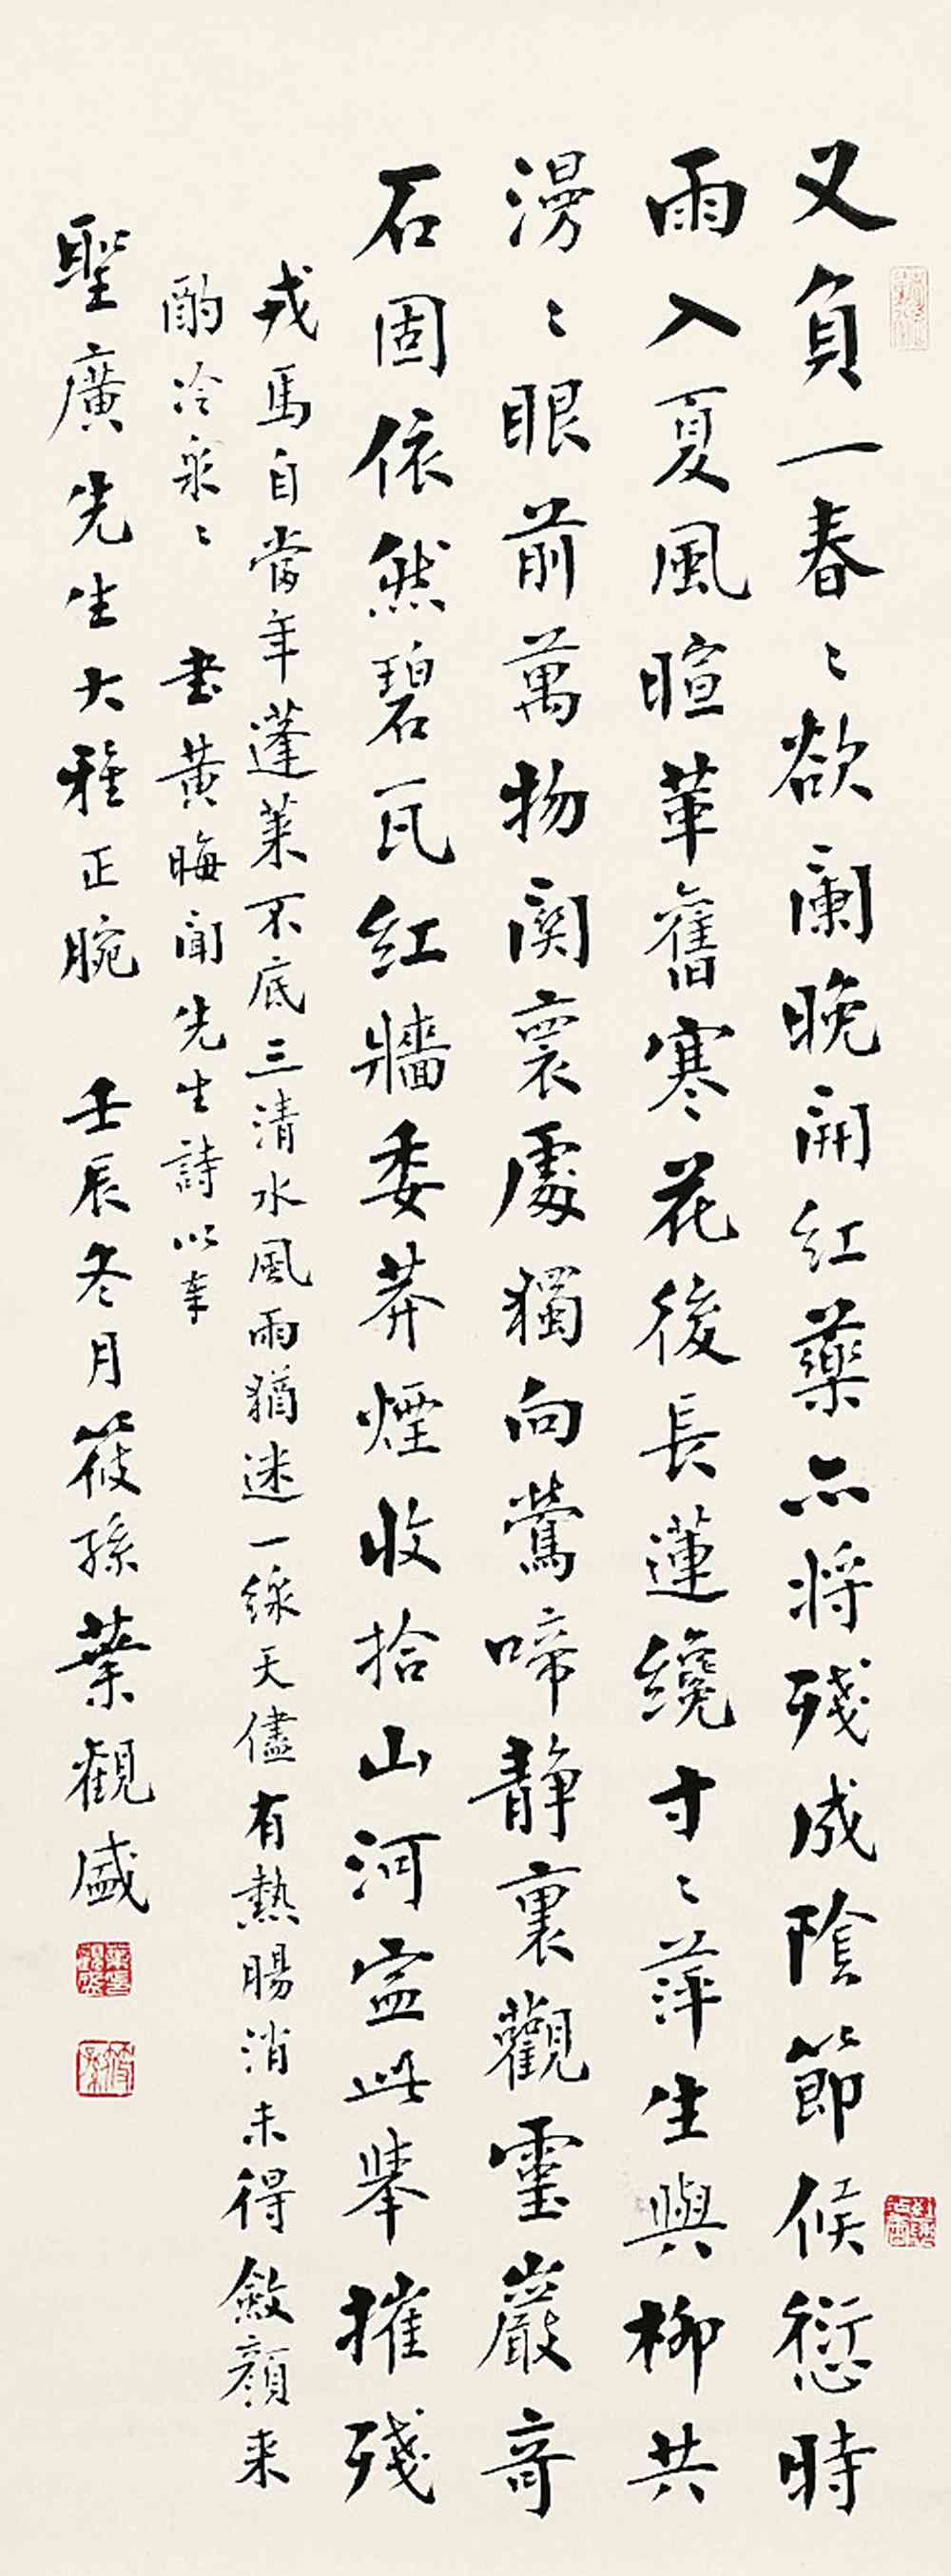 又負一春〻欲闌晚開紅藥亦將殘成陰節候愆時
雨入夏風暄革舊寒花後長蓮纔寸〻萍生與柳共
漫〻眼前萬物関褱處獨向鶯啼靜裏觀靈巖奇
石固依然碧瓦紅牆委莽煙收拾山河寍此舉摧殘
戎馬自當年蓬萊不底三清水風雨猶迷一線天儘有熱腸消未得斂顏来
酌冷泉〻 書黄晦聞先生詩以奉
聖廣先生大雅正腕 壬辰冬月莜孫葉觀盛